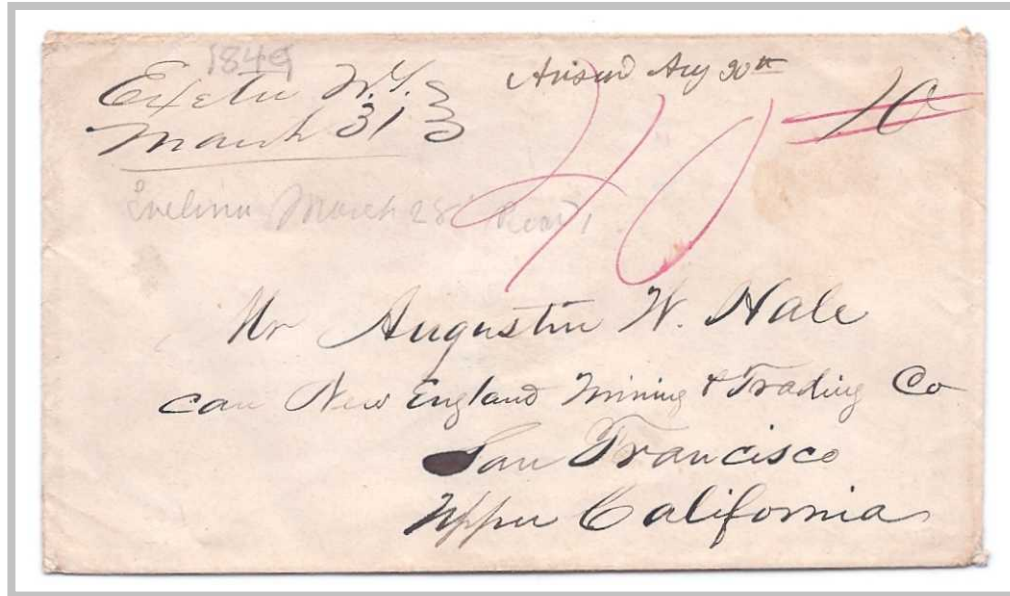 1849
Exeter N.Y.
March 31
Answd Aug 30th
10
40
Evelina March 28th
Mr Augustin W. Hale
care New England Mining & Trading Co
San Francisco
Upper California